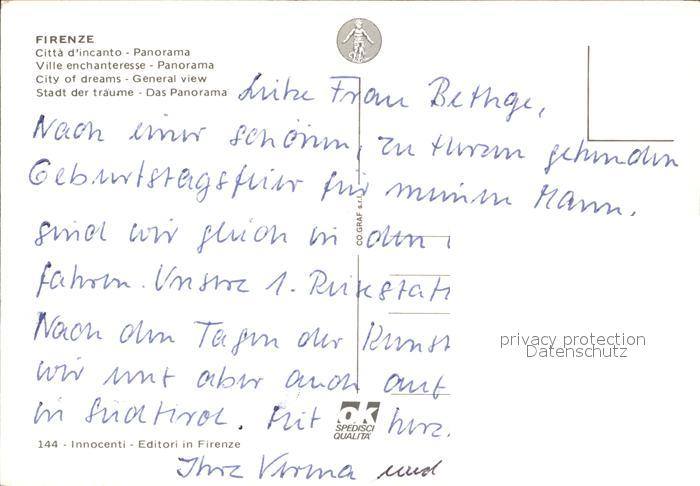 FIRENZE
Città d'incanto - Panorama
Ville enchanteresse - Panorama
City of dreams - General view
Stadt der träume - Das Panorama
Liebe Frau Bethge,
Nach einer schönen, zu Ihrem gehenden
Geburtstagsfeier für meinen Mann,
sind wir gleich in den
fahren. Unsere 1. Reisestati
Nach den Tagen der Kunst
wir uns aber auch auf
in Südtirol. Mit herz.
CO.GRAF s.r.l.
ok
SPEDISCI
QUALITA'
144 - Innocenti - Editori in Firenze
Ihre Verena und
privacy protection
Datenschutz